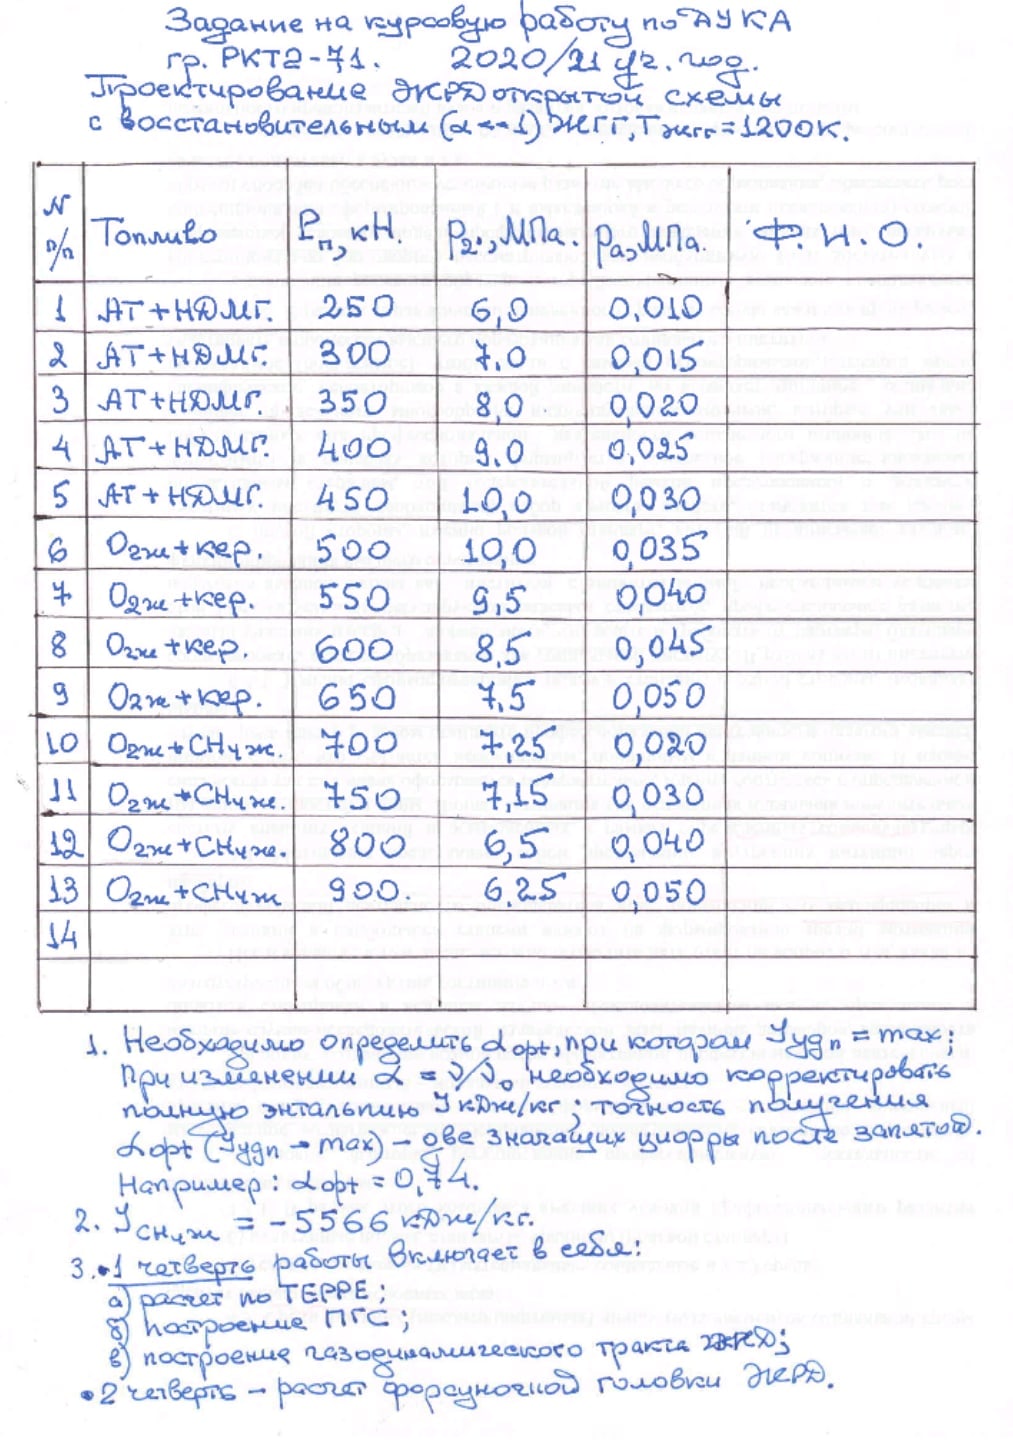 Задание на курсовую работу по АУКА
гр. РКТ2-71. 2020/21 уч. год.
Проектирование ЖРД открытой схемы
с восстановительным (α<<1) ЖГГ, Tжгг = 1200К.
N п/п Топливо Pп, кН. P2, МПа. Pa, МПа. Ф. И. О.
1 АТ+НДМГ. 250 6,0 0,010
2 АТ+НДМГ. 300 7.0 0,015
3 АТ+НДМГ. 350 8,0 0,020
4 АТ+НДМГ. 400 9.0 0,025
5 АТ+НДМГ. 450 10,0 0,030
6 O2ж+кер. 500 10,0 0,035
7 O2ж+кер. 550 9,5 0,040
8 O2ж+кер. 600 8,5 0,045
9 O2ж+кер. 650 7,5 0,050
10 O2ж+CH4ж. 700 7,25 0,020
11 O2ж+CH4ж. 750 7,15 0,030
12 O2ж+CH4ж. 800 6,5 0,040
13 O2ж+CH4ж 900. 6.25 0,050
14
1. Необходимо определить αopt, при котором Jудп = max;
При изменении α = ν/ν0 необходимо корректировать
полную энтальпию J кДж/кг. точность получения
αopt (Jудп → max) – две значащих цифры после запятой.
Например: αopt = 0,74.
2. JCH4ж = -5566 кДж/кг.
3. • 1 четверть работы включает в себя:
а) расчет по ТЕРРЕ;
б) построение ПГС;
в) построение газодинамического тракта ЖРД;
• 2 четверть – расчет форсуночной головки ЖРД.